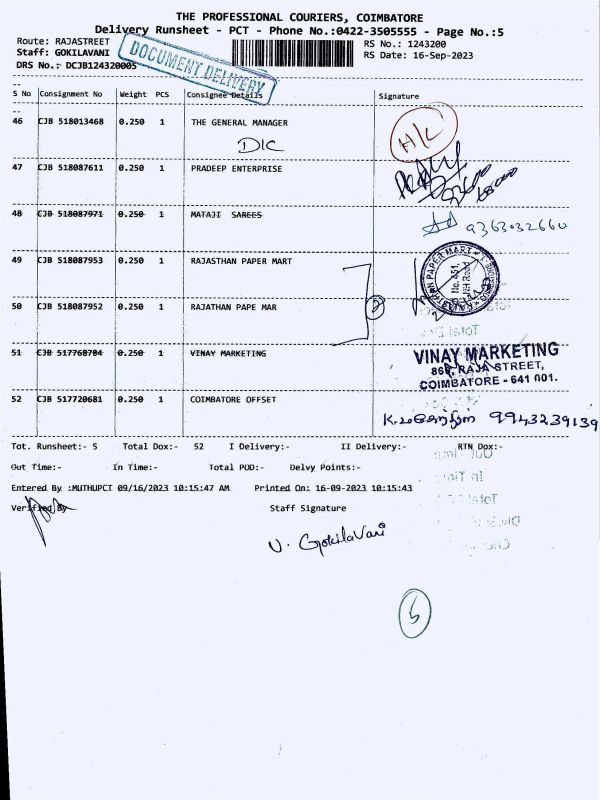 THE PROFESSIONAL COURIERS, COIMBATORE
Delivery Runsheet - PCT - Phone No.:0422-3505555 - Page No.:5
Route: RAJASTREET
RS No.: 1243200
Staff: GOKILAVANI
RS Date: 16-Sep-2023
DRS No.: DCJB124320005
DOCUMENT DELIVERY
S No Consignment No Weight PCS Consignee Details Signature
46 CJB 518013468 0.250 1 THE GENERAL MANAGER
DIC
H/C
47 CJB 518087611 0.250 1 PRADEEP ENTERPRISE
48 CJB 518087971 0.250 1 MATAJI SAREES
9363032660
49 CJB 518087953 0.250 1 RAJASTHAN PAPER MART
RAJASTHAN PAPER MART
No. 451,
NH Road
50 CJB 518087952 0.250 1 RAJATHAN PAPE MAR
2
51 CJB 517768784 0.250 1 VINAY MARKETING
VINAY MARKETING
RAJA STREET,
COIMBATORE - 641 001.
52 CJB 517720681 0.250 1 COIMBATORE OFFSET
9943239139
Tot. Runsheet:- 5 Total Dox:- 52 I Delivery:- II Delivery:- RTN Dox:-
Out Time:- In Time:- Total POD:- Delvy Points:-
Entered By :MUTHUPCT 09/16/2023 10:15:47 AM Printed On: 16-09-2023 10:15:43
Verified By Staff Signature
U. Gokilavani
5